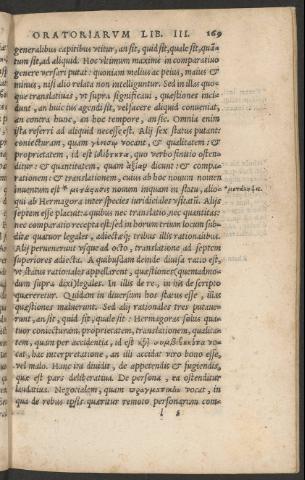 ORATORIARVM LIB. III. 169
generalibus capitibus vtitur, an sit, quid sit, quale sit, quã
tum sit, ad aliquid. Hoc vltimum maxime in comparatiuo
genere versari putat: quoniam melius ac peius, maius &
minus, nisi alio relata non intelliguntur. Sed in illas quo-
que translatiuas, vt supra significaui, quæstiones inci-
dunt, an huic ius agendi sit, vel facere aliquid conueniat,
an contra hunc, an hoc tempore, an sic. Omnia enim
ista referri ad aliquid necesse est. Alij sex status putant:
coniecturam, quam vocant, & qualitatem: &
proprietatem, id est ἰδιότητα, quo verbo finitio osten-
ditur: & quantitatem, quam ἀξίαν dicunt: & compa-
rationem: & translationem, cuius ab hoc nouum nomen
inuentum est * μετάστασις nouum inquam in statu, alio-
qui ab Hermagora inter species iuridiciales vsitatū. Alijs
septem esse placuit: a quibus nec translatio, nec quantitas:
nec comparatio recepta est: sed in horum trium locum sub-
ditæ quatuor legales, adiectæq; tribus illis rationalibus.
Alij peruenerunt vsque ad octo, translatione ad septem
superiores adiecta. A quibusdam deinde diuisa ratio est,
vt status rationales appellarent, quæstiones (quemadmo-
dum supra dixi) legales. In illis de re, in his de scripto
quæreretur. Quidam in diuersum hos status esse, illas
quæstiones maluerunt. Sed alij rationales tres putaue-
runt, an sit, quid sit, quale sit: Hermagoras solus qua-
tuor coniecturam, proprietatem, translationem, qualita-
tem, quam per accidentia, id est κατὰ συμβεβηκότα vo-
cat, hac interpretatione, an illi accidat viro bono esse,
vel malo. Hanc ita diuidit, de appetendis & fugiendis,
quæ est pars deliberatiua. De persona, ea ostenditur
laudatiua. Negocialem, quam πραγματικὴν vocat, in
qua de rebus ipsis quæritur remoto personarum com-
l 5